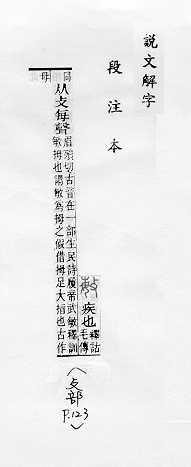 說文解字
段注本
疾也釋詁
毛傳
同
从攴每聲眉殞切古音在一部生民詩履帝武敏釋訓
敏拇也謂敏為拇之假借拇足大指也古作
母
(攴部
P.123)